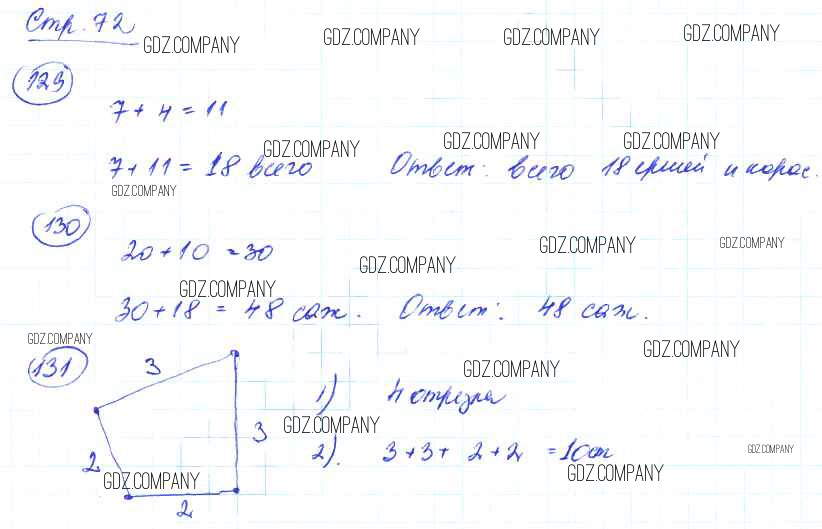 Стр. 72
GDZ.COMPANY GDZ.COMPANY GDZ.COMPANY GDZ.COMPANY
129
7 + 4 = 11
GDZ.COMPANY GDZ.COMPANY GDZ.COMPANY
7 + 11 = 18 всего Ответ: всего 18 ершей и карас.
GDZ.COMPANY
130
20 + 10 = 30
GDZ.COMPANY GDZ.COMPANY GDZ.COMPANY
GDZ.COMPANY
30 + 18 = 48 саж. Ответ: 48 саж.
GDZ.COMPANY GDZ.COMPANY
131
GDZ.COMPANY
3
1) 4 отрезка
GDZ.COMPANY
3
2). 3 + 3 + 2 + 2 = 10 см
GDZ.COMPANY
2
GDZ.COMPANY GDZ.COMPANY
2